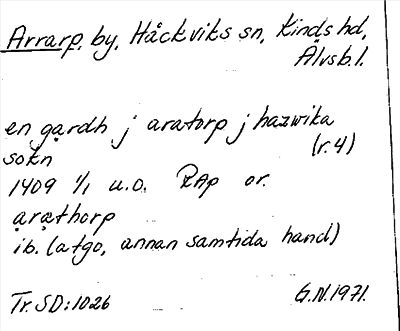 Arrarp, by, Håckviks sn, Kinds hd,
Älvsb.l.
en gardh j aratorp j hazwika
sokn (r.4)
1409 1/1 u.o. RAp or.
arathorp
ib. (atgo, annan samtida hand)
Tr. SD:1026 G.N.1971.